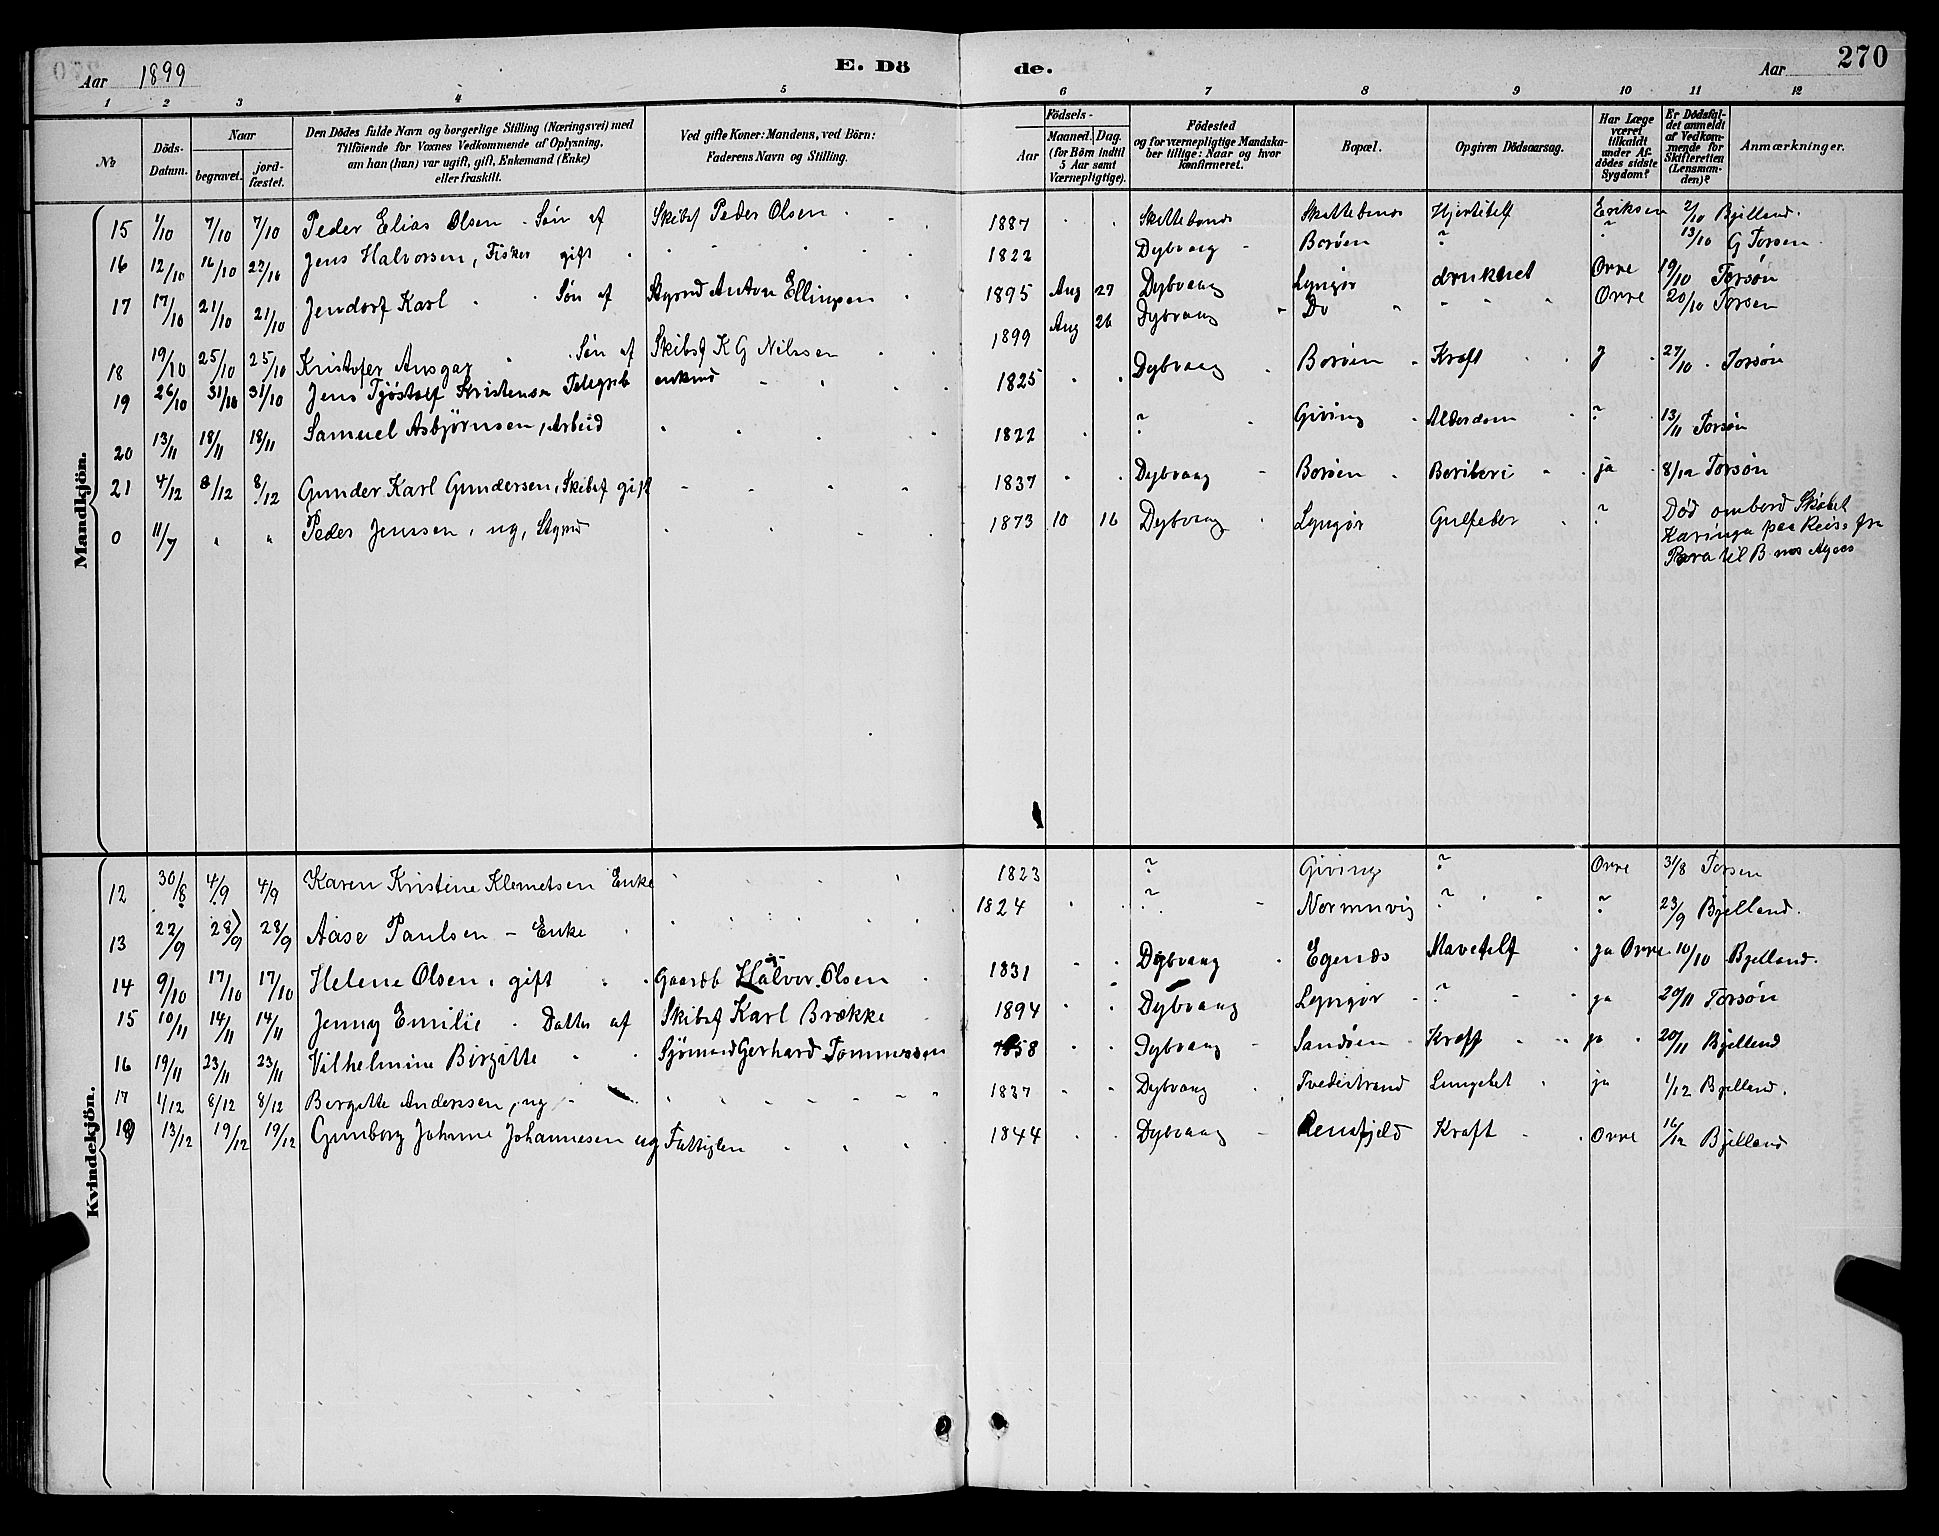 Aar 1899 E. Dö de. Aar 270
1 2 3 4 5 6 7 8 9 10 11 12
No
Döds-Datum.
Naar
begravet. jord-fæstet.
Den Dödes fulde Navn og borgerlige Stilling (Næringsvei) med
Tilföiende for Voxnes Vedkommende af Oplysning,
om han (hun) var ugift, gift, Enkemand (Enke)
eller fraskilt.
Ved gifte Koner: Mandens, ved Börn:
Faderens Navn og Stilling.
Födsels-
Aar Maaned. Dag.
(for Börn indtil
5 Aar samt
Værnepligtige).
Födested
og for værnepligtige Mandska-
ber tillige: Naar og hvor
konfirmeret.
Bopæl.
Opgiven Dödsaarsag.
Har Læge
været
tilkaldt
under Af-
dödes sidste
Sygdom?
Er Dödsfal-
det anmeldt
af Vedkom-
mende for
Skifteretten
(Lensman-
den)?
Anmærkninger.
Mandkjön.
15 1/10 7/10 7/10 Peder Elias Olsen - Søn af Skibsf Peder Olsen 1887 Skottebonds Hjertetilf Eriksen 2/10 Bjelland.
16 12/10 16/10 Jens Halvorsen, Fisker gift 1822 Dybvaag Borøen ? " 13/10 G Torsen
17 17/10 21/10 21/10 Jendorf Karl Søn af Styrmd Anton Ellingsen 1895 Aug 27 Dybvaag Lyngør druknet Orre 19/10 Torsøn
1899 Aug 26 Dybvaag Do " Orre 20/10 Torsen
18 19/10 25/10 25/10 Kristofer Ansgar Søn af Skibsf K G Nilssen
19 26/10 31/10 31/10 Jens Tjøstolf Kristensen Telegrb enkmd 1825 Dybvaag Borøen Kræft J 27/10 Torsøn
20 13/11 18/11 18/11 Samuel Asbjørnsen, Arbeid 1822 ? Giving Alderdom ? 13/11 Torsøn
21 4/12 8/12 8/12 Gunder Karl Gundersen, Skibsf gift 1837 Dybvaag Borøen Beriberi ja 8/12 Torsøn
0 11/7 " " Peder Jenssen, ug, Styrmd 1873 10 16 Dybvaag Lyngør Gulfeber ? Død ombord Skibet
Karinga paa Reise fra
Para til B
Kvindekjön.
12 30/8 4/9 4/9 Karen Kristine Klemetsen Enke 1823 ? Giving ? Orre 31/8 Torsen
13 22/9 28/9 28/9 Aase Paulsen - Enke 1824 ? Normnvig ? ? 23/9 Bjelland.
14 9/10 17/10 17/10 Helene Olsen, gift Gaardb Halvor Olsen 1831 Dybvaag Egenæs Mavetilf ja Orre 10/10 Bjelland.
15 10/11 14/11 14/11 Jenny Emilie - Datter af Skibsf Karl Brække 1894 Dybvaag Lyngør ? ja 20/11 Torsøn
16 19/11 23/11 23/11 Vilhelmine Birgitte Sjömand Gerhard Tommessen 1858 Dybvaag Sandøen Kræft ja 20/11 Bjelland
17 1/12 8/12 8/12 Birgitte Anderssen, ug - 1837 Dybvaag Tvedestrand Lungebet ja 1/12 Bjelland.
18 13/12 19/12 19/12 Gunborg Johanne Johannesen ug Fattiglem 1844 Dybvaag Kræft Orre 16/12 Bjelland